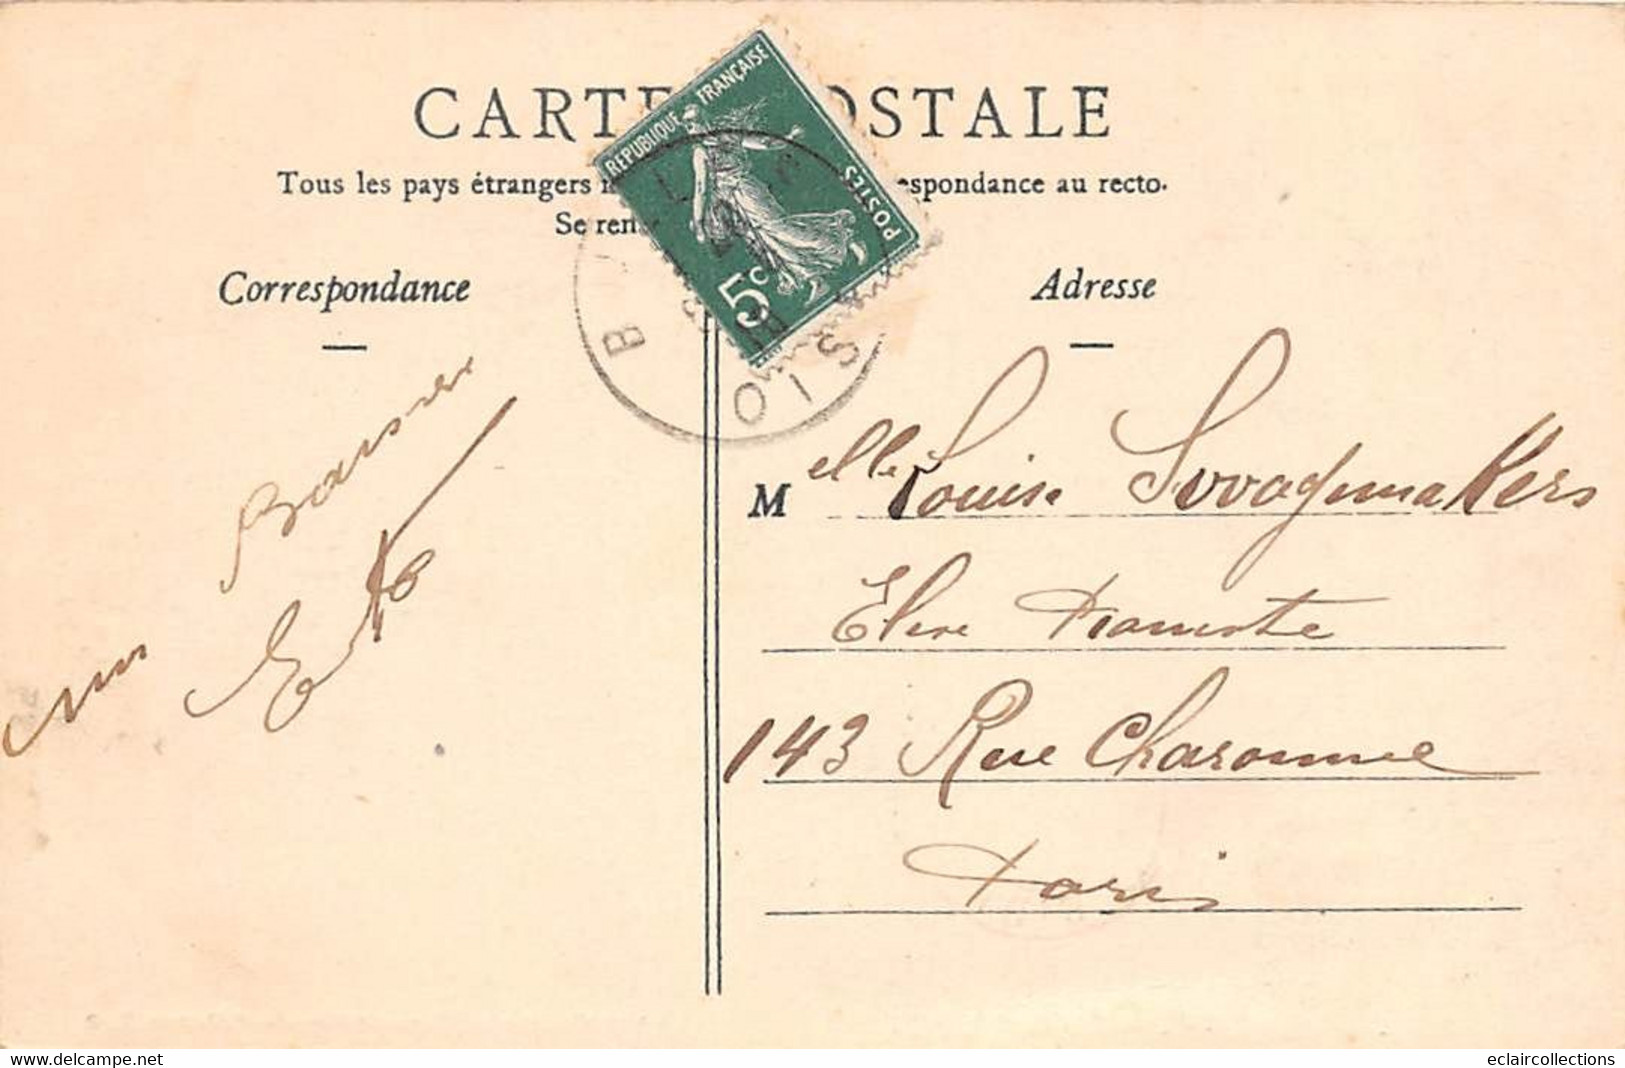 CARTE POSTALE
Tous les pays étrangers espondance au recto.
Se ren
RÉPUBLIQUE FRANÇAISE
POSTES
5c
OIS
Correspondance
Adresse
un Baiser
Melle Louise Swagemakers
Élève Pianiste
143 Rue Charonne
Paris
eclaircollections